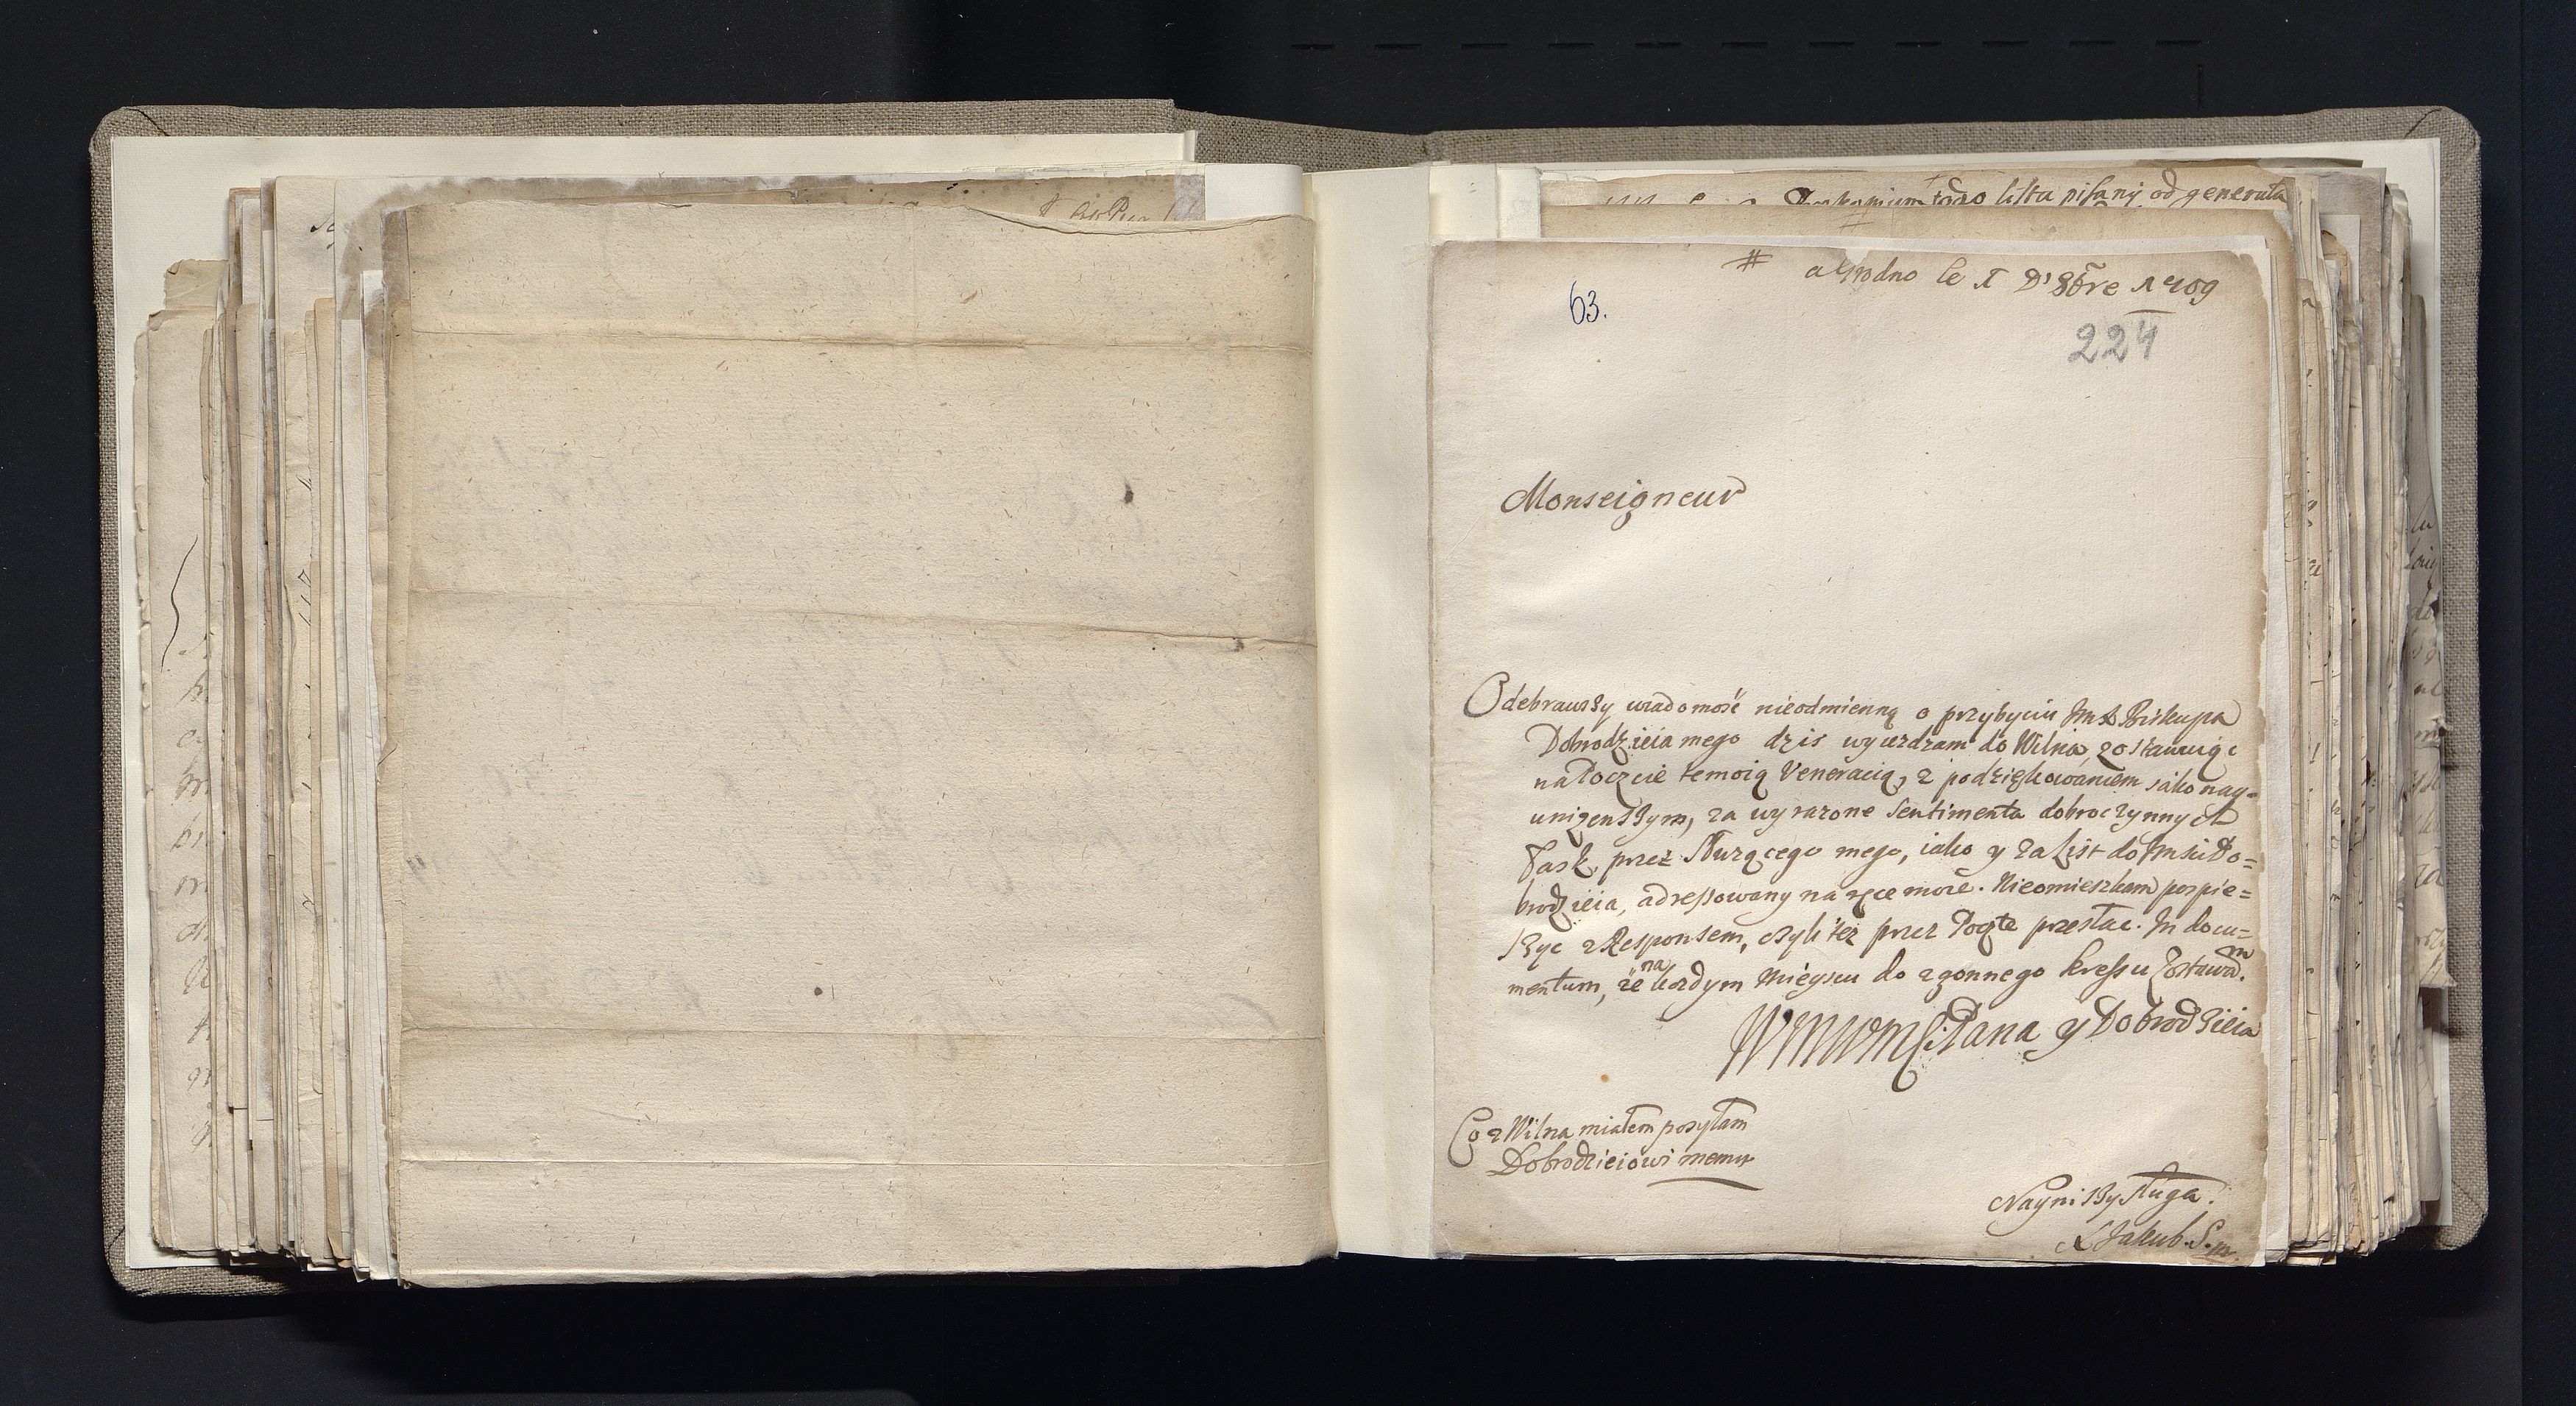 lista pisany od generała
# a Grodno le 1 D' 8bre 1709
63.
224
Monseigneur
Odebrawszy wiadomość nieodmienną o przybyciu Jms Biskupa
Dobrodzieia mego dzis wyiezdzam do Wilna, zostawuiąc
na Poczcie te moią Veneracią, z podziękowaniem iako nay=
unizenszym, za wyrazone sentimenta dobroczynnych
Łask, przez Sługącego mego, iako y za List do Jmsci Do=
brodzieia, adressowany na ręce moie. Nieomieszkam pospie=
szyc z Responsem, czyli też przez Pocztę przesłac. In docu=
mentum, że na kozdym mieyscu do zgonnego kressu Zostawam.
WMMWMSci Pana y Dobrodzieia
Co z Wilna miałem posyłam
Dobrodzieiowi memu
Nayniszy sługa.
X Jakub. S. m.